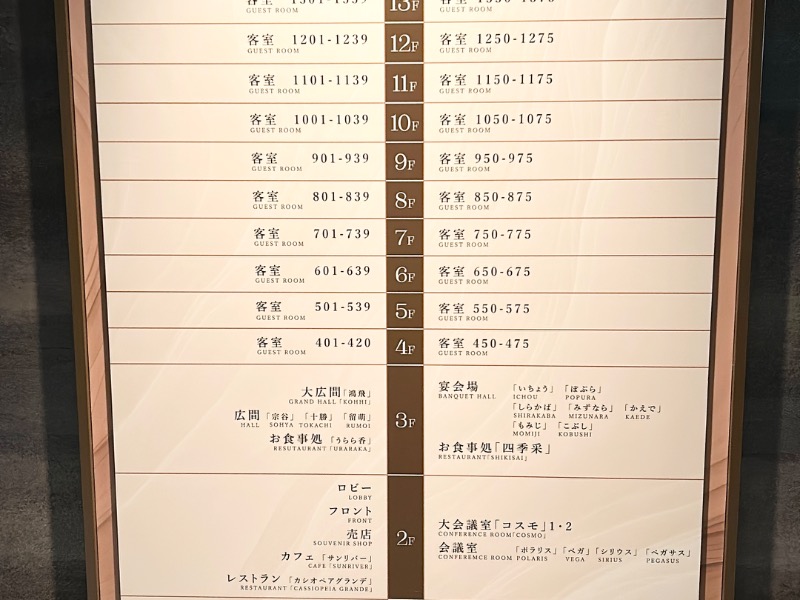 客室 1301-1339 13F 客室 1350-1375
GUEST ROOM GUEST ROOM
客室 1201-1239 12F 客室 1250-1275
GUEST ROOM GUEST ROOM
客室 1101-1139 11F 客室 1150-1175
GUEST ROOM GUEST ROOM
客室 1001-1039 10F 客室 1050-1075
GUEST ROOM GUEST ROOM
客室 901-939 9F 客室 950-975
GUEST ROOM GUEST ROOM
客室 801-839 8F 客室 850-875
GUEST ROOM GUEST ROOM
客室 701-739 7F 客室 750-775
GUEST ROOM GUEST ROOM
客室 601-639 6F 客室 650-675
GUEST ROOM GUEST ROOM
客室 501-539 5F 客室 550-575
GUEST ROOM GUEST ROOM
客室 401-420 4F 客室 450-475
GUEST ROOM GUEST ROOM
大広間「鴻飛」
GRAND HALL「KOHHI」
広間「宗谷」「十勝」「留萌」
HALL SOHYA TOKACHI RUMOI
お食事処「うらら香」
RESUTAURANT「URARAKA」
3F
宴会場 「いちょう」「ぽぷら」
BANQUET HALL ICHOU POPURA
「しらかば」「みずなら」「かえで」
SHIRAKABA MIZUNARA KAEDE
「もみじ」「こぶし」
MOMIJI KOBUSHI
お食事処「四季采」
RESTAURANT「SHIKISAI」
ロビー
LOBBY
フロント
FRONT
売店
SOUVENIR SHOP
カフェ「サンリバー」
CAFE「SUNRIVER」
レストラン「カシオペアグランデ」
RESTAURANT「CASSIOPEIA GRANDE」
2F
大会議室「コスモ」1・2
CONFERENCE ROOM「COSMO」
会議室 「ポラリス」「ベガ」「シリウス」「ペガサス」
CONFEREMCE ROOM POLARIS VEGA SIRIUS PEGASUS